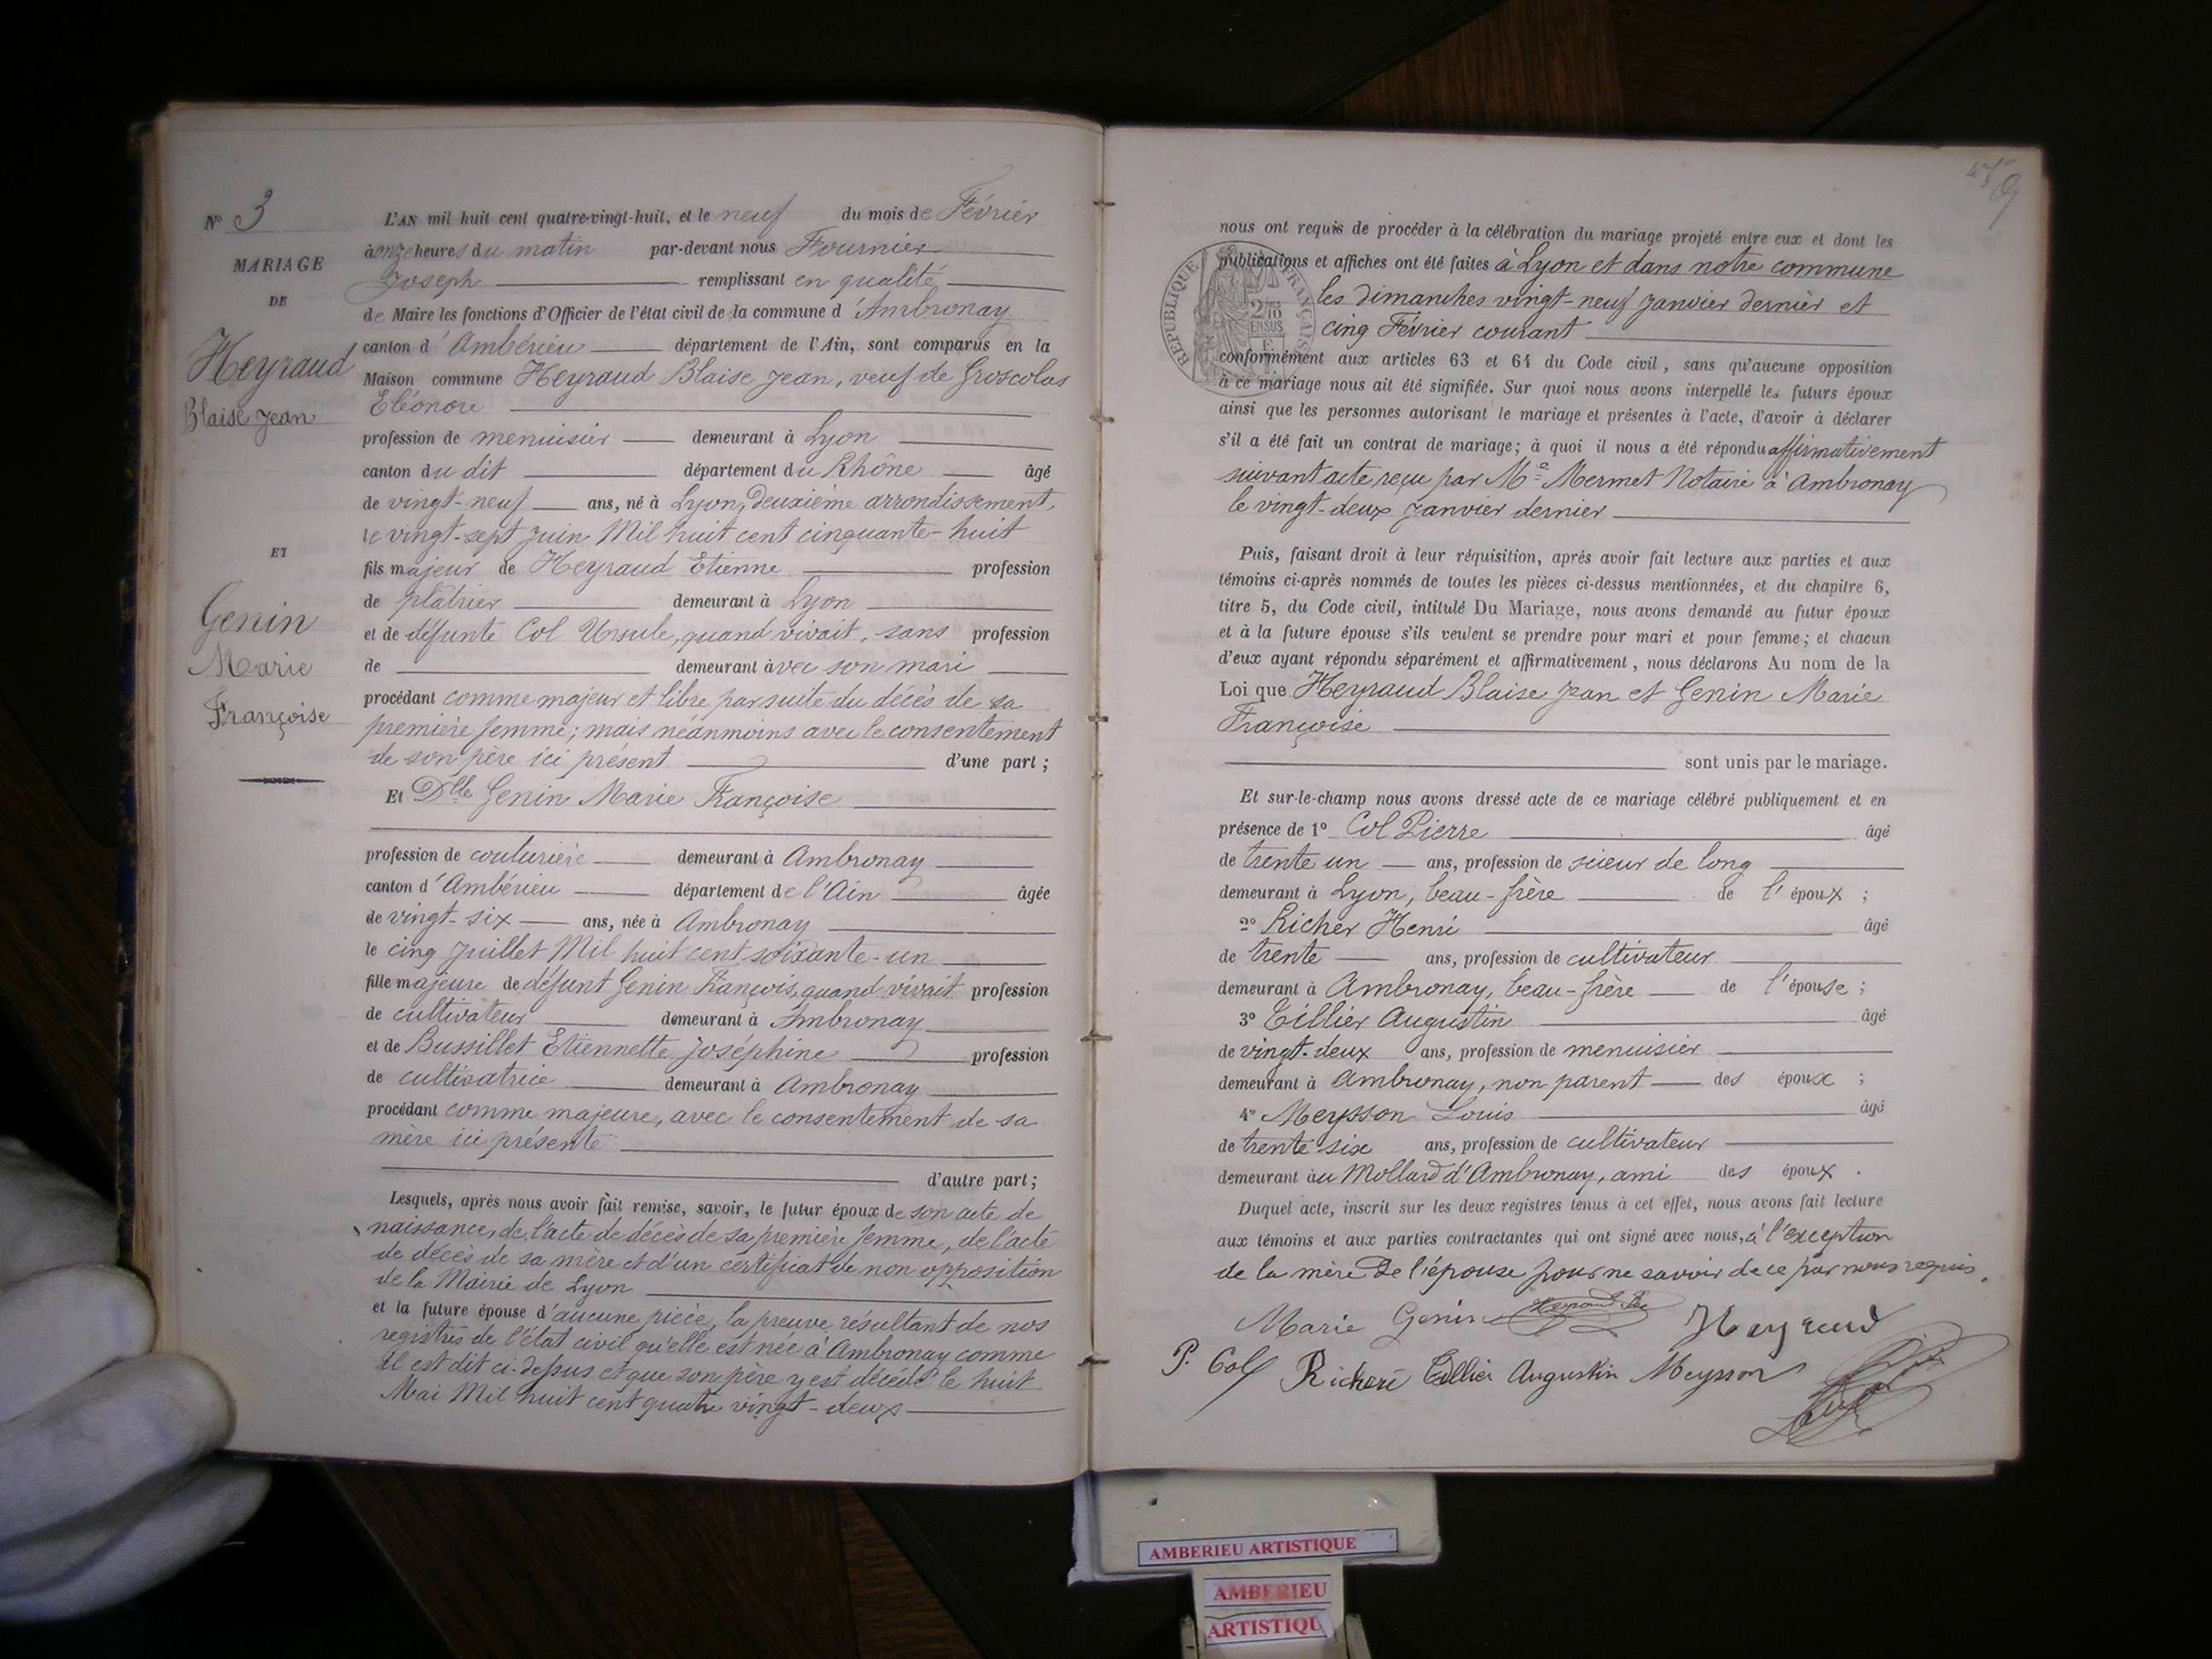 N° 3
MARIAGE
DE
Heyraud
Blaise Jean
ET
Genin
Marie
Françoise
L'AN mil huit cent quatre-vingt-huit, et le neuf du mois de Février
à onze heures du matin par-devant nous Fournier
Joseph remplissant en qualité
de Maire les fonctions d'Officier de l'état civil de la commune d'Ambronay
canton d'Ambérieu département de l'Ain, sont comparus en la
Maison commune Heyraud Blaise Jean, veuf de Groscolas
Eléonore
profession de menuisier demeurant à Lyon
canton du dit département du Rhône âgé
de vingt-neuf ans, né à Lyon, Deuxième arrondissement,
le vingt-sept Juin Mil huit cent cinquante-huit
fils majeur de Heyraud Etienne profession
de platrier demeurant à Lyon
et de défunte Col Ursule, quand vivait, sans profession
de demeurant avec son mari
procédant comme majeur et libre par suite du décès de sa
première femme; mais néanmoins avec le consentement
de son père ici présent d'une part;
Et Dlle Genin Marie Françoise
profession de couturière demeurant à Ambronay
canton d'Ambérieu département de l'Ain âgée
de vingt-six ans, née à Ambronay
le cinq Juillet Mil huit cent soixante-un
fille majeure de défunt Genin François, quand vivait profession
de cultivateur demeurant à Ambronay
et de Bussillet Etiennette Joséphine profession
de cultivatrice demeurant à Ambronay
procédant comme majeure, avec le consentement de sa
mère ici présente
d'autre part;
Lesquels, après nous avoir fait remise, savoir, le futur époux de son acte de
naissance, de l'acte de décès de sa première femme, de l'acte
de décès de sa mère et d'un certificat de non opposition
de la Mairie de Lyon
et la future épouse d'aucune pièce, la preuve résultant de nos
registres de l'état civil qu'elle est née à Ambronay comme
il est dit ci-dessus et que son père y est décédé le huit
Mai Mil huit cent quatre vingt-deux
nous ont requis de procéder à la célébration du mariage projeté entre eux et dont les
publications et affiches ont été faites à Lyon et dans notre commune
les dimanches vingt-neuf Janvier dernier et
cinq Février courant
RÉPUBLIQUE FRANÇAISE
conformément aux articles 63 et 64 du Code civil, sans qu'aucune opposition
à ce mariage nous ait été signifiée. Sur quoi nous avons interpellé les futurs époux
ainsi que les personnes autorisant le mariage et présentes à l'acte, d'avoir à déclarer
s'il a été fait un contrat de mariage; à quoi il nous a été répondu affirmativement
suivant acte reçu par Me Mermet Notaire à Ambronay
le vingt-deux Janvier dernier
Puis, faisant droit à leur réquisition, après avoir fait lecture aux parties et aux
témoins ci-après nommés de toutes les pièces ci-dessus mentionnées, et du chapitre 6,
titre 5, du Code civil, intitulé Du Mariage, nous avons demandé au futur époux
et à la future épouse s'ils veulent se prendre pour mari et pour femme; et chacun
d'eux ayant répondu séparément et affirmativement, nous déclarons Au nom de la
Loi que Heyraud Blaise Jean et Genin Marie
Françoise
sont unis par le mariage.
Et sur-le-champ nous avons dressé acte de ce mariage célébré publiquement et en
présence de 1° Col Pierre âgé
de trente un ans, profession de scieur de long
demeurant à Lyon, beau-frère de l'époux;
2° Richer Henri âgé
de trente ans, profession de cultivateur
demeurant à Ambronay, beau-frère de l'épouse;
3° Tillier Augustin âgé
de vingt-deux ans, profession de menuisier
demeurant à Ambronay, non parent des époux;
4° Meysson Louis âgé
de trente six ans, profession de cultivateur
demeurant au Mollard d'Ambronay, ami des époux.
Duquel acte, inscrit sur les deux registres tenus à cet effet, nous avons fait lecture
aux témoins et aux parties contractantes qui ont signé avec nous, à l'exception
de la mère de l'épouse pour ne savoir de ce par nous requis.
Marie Genin Heyraud
P. Col Tillier Augustin Meysson
AMBERIEU ARTISTIQUE
AMBERIEU
ARTISTIQU